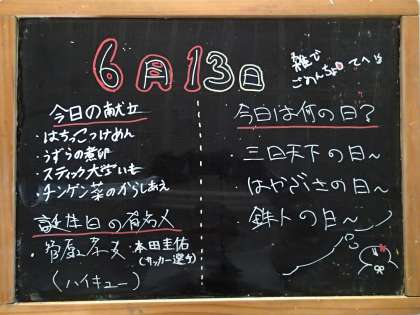 6月13日
雑で
ごめんちょ てへ
今日の献立
・はちっこつけめん
・うずらの煮卵
・スティック大学いも
・チンゲン菜のからしあえ
誕生日の有名人
・菅原孝支 本田圭佑
(サッカー選手)
(ハイキュー)
今日は何の日?
・三日天下の日〜
・はやぶさの日〜
・鉄人の日〜